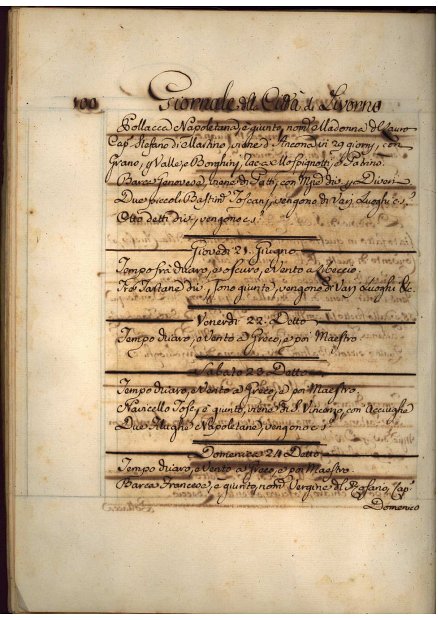 100 Giornale della Città di Livorno
Pollacca Napoletana, è giunto, nom. Madonna del Lauro
Cap. Stefano di Martino, viene d'Ancona in 29 giorni, con
Grano, p Valle, e Borghini,
Barca Genovese, viene di con mrzie div. p Diversi
Due piccoli Bastim. Toscani, vengono di Varj Luoghi c.s.
Otto detti div., vengono c.s.
Giovedi 21. Giugno
Tempo frà chiaro, e oscuro, e Vento a Libeccio
Tre Tartane div., sono giunte, vengono di Varj Luoghi &c.
Venerdi 22. Detto
Tempo chiaro, e Vento a Greco, e poi Maestro
Sabato 23. Detto
Tempo chiaro, e Vento a Greco, e poi Maestro.
Navicello è giunto, viene di S. Vincenzo, con Acciughe
Due Napoletane, vengono c.s.
Domenica 24 Detto
Tempo chiaro, e Vento a Greco, e poi Maestro.
Barca Francese, è giunto, nom. Vergine del Cap.
Domenico